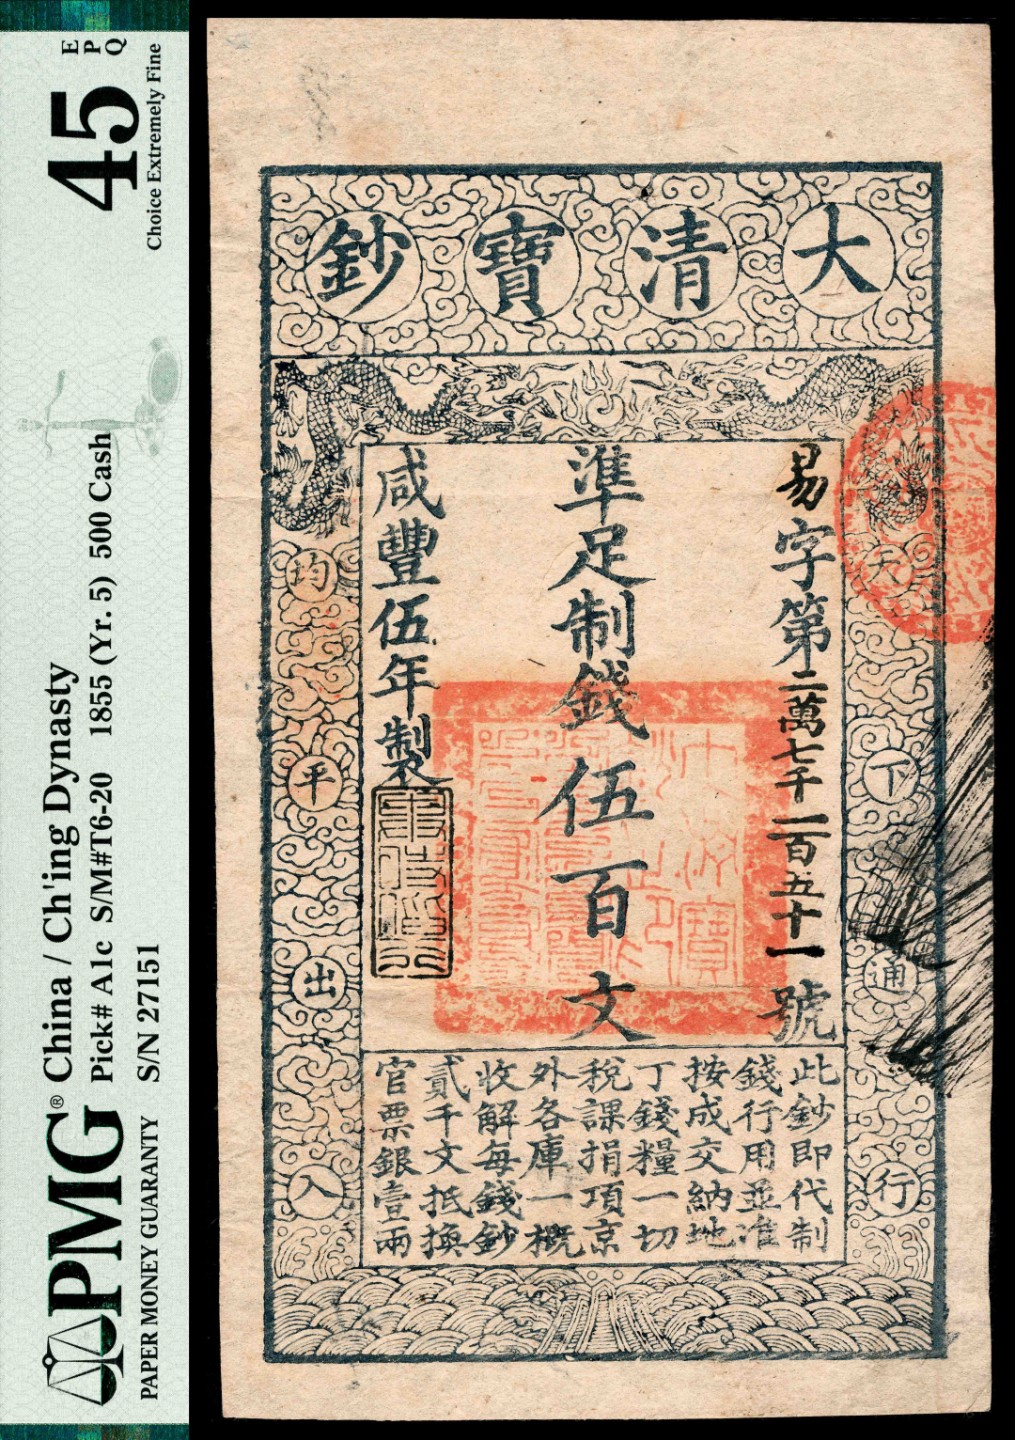 PMG®
PAPER MONEY GUARANTY
China / Ch'ing Dynasty
Pick# A1c S/M#T6-20 1855 (Yr. 5) 500 Cash
S/N 27151
45
EPQ
Choice Extremely Fine
大清寶鈔
天下通行
均平出入
易字第二萬七千一百五十一號
準足制錢伍百文
咸豐伍年製
此鈔即代制
錢行用並准
按成交納地
丁錢糧一切
稅課捐項京
外各庫一概
收解每錢鈔
貳千文抵換
官票銀壹兩